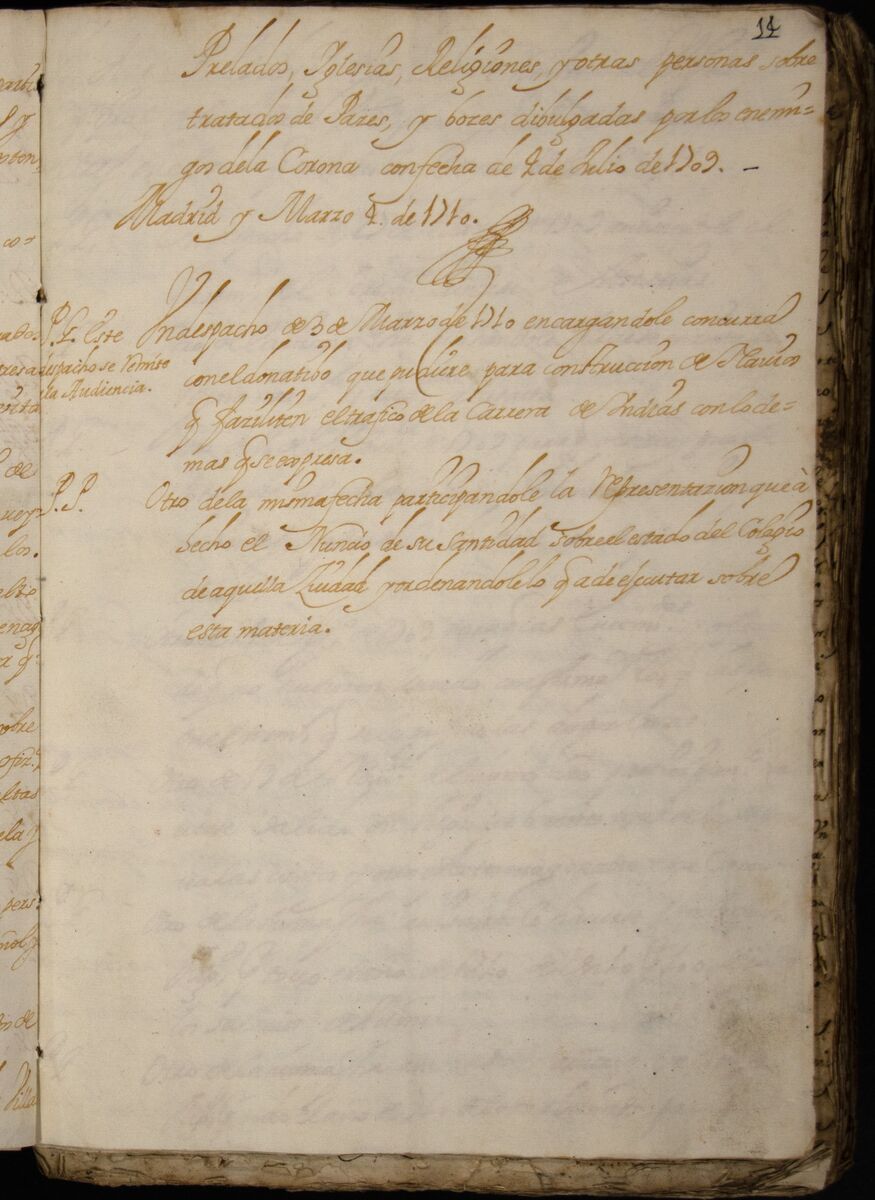 11
Prelados, Yglesias, Religiones, y otras personas sobre
tratados de Pazes, y bozes divulgadas por los enemi=
gos dela Corona con fecha de 4 de Julio de 1709. –
Madrid y Marzo 4. de 1710.
Un despacho de 3 de Marzo de 1710 encargandole concurra
con el donatibo que pudiere para contruccion de Navios
q faziliten el trafico de la Carrera de Indias con lo de=
mas q se expresa.
P. E. Este
despacho se remite
a la Audiencia.
P. P.
Otro dela misma fecha participandole la representazion que à
hecho el Nuncio de su Santidad sobre el estado del Colegio
de aquella Ziudad y ordenandole lo q a de ejecutar sobre
esta materia.